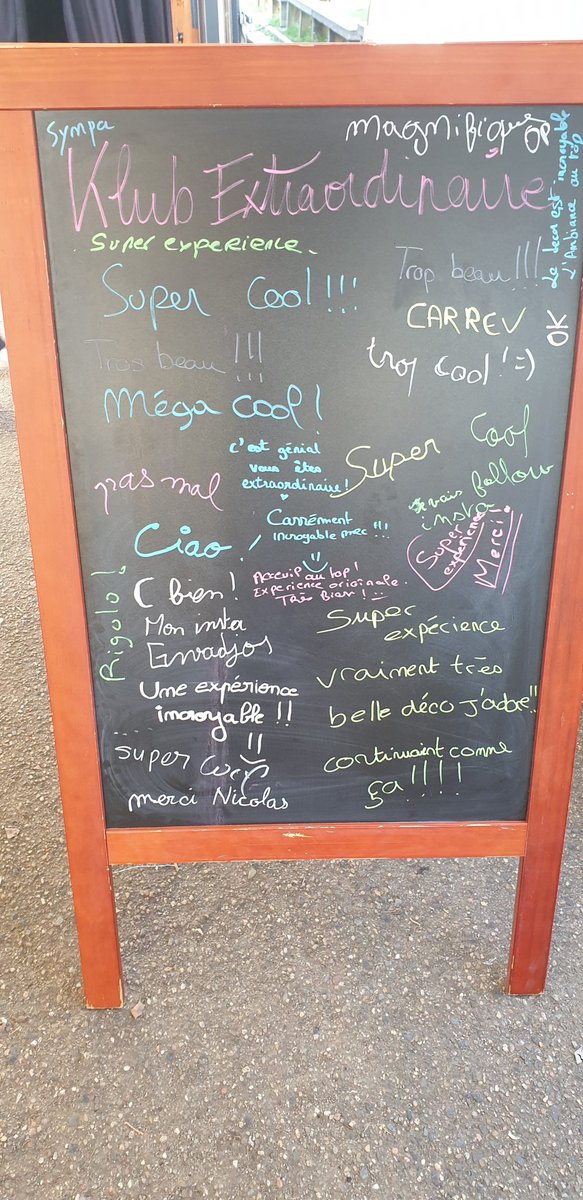 Sympa
magnifique
OP
Klub Extraordinaire
Le decor est incroyable
L'Ambiance au top
Super experience.
Trop beau!!!
Super Cool!!!
CARREV
OK
Trop beau!!!
trop cool! =)
Méga cool!
Super Cool
c'est génial
vous êtes
extraordinaire!
Je vais follow
insta
pas mal
Carrément
incroyable mec !!!
Super
expérience
Merci!
Ciao!
Acceuil au top!
Experience originale.
Très Bien!
C bien!
Rigolo!
Super
expécience
Mon insta
Envadjos
vraiment très
belle déco j'adore!!
Une expérience
incroyable !!
super
continuaient comme
ça!!!!
merci Nicolas